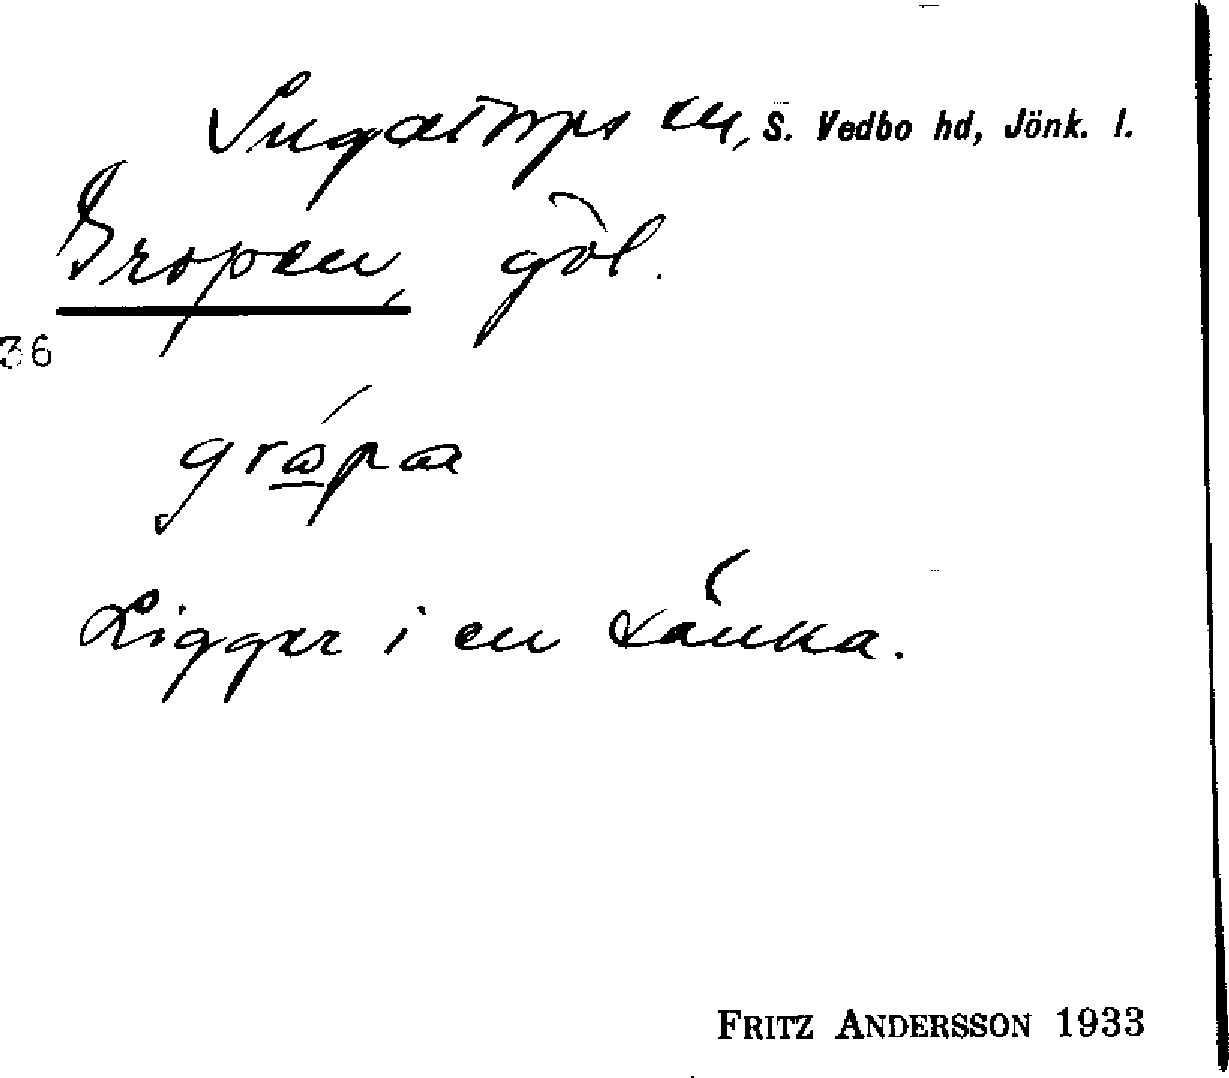 Ingatorps sn, S. Vedbo hd, Jönk. l.
Gropen, göl.
36
Ligger i en sänka.
FRITZ ANDERSSON 1933